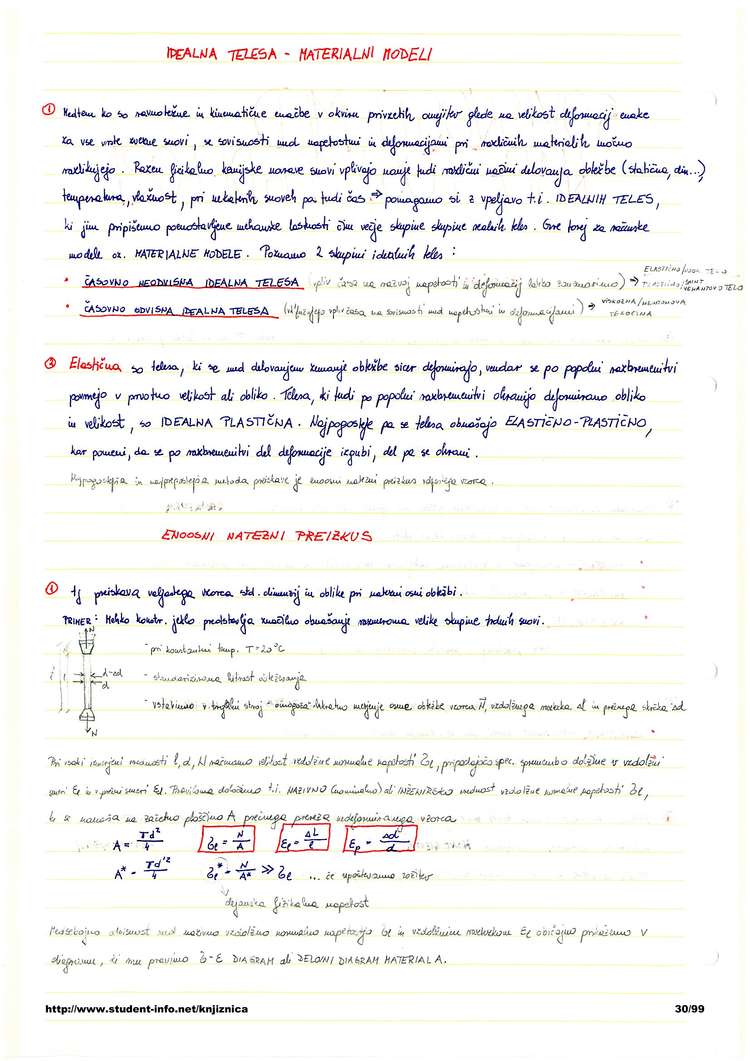 IDEALNA TELESA - MATERIALNI MODELI
① Medtem ko so ravnotežne in kinematične enačbe v okviru privzetih omejitev glede na velikost deformacij enake
za vse vrste snovi, se odvisnosti med napetostmi in deformacijami pri različnih materialih močno
razlikujejo. Razen fizikalno kemijske narave snovi vplivajo nanje tudi različni načini delovanja obtežbe (statična, din...),
temperatura, vlažnost, pri nekaterih snoveh pa tudi čas. → pomagamo si z vpeljavo t.i. IDEALNIH TELES,
ki jim pripišemo poenostavljene mehanske lastnosti čim večje skupine skupine realnih teles. Gre torej za računske
modele oz. MATERIALNE MODELE. Poznamo 2 skupini idealnih teles :
• ČASOVNO NEODVISNA IDEALNA TELESA (vpliv časa na razvoj napetosti in deformacij lahko zanemarimo) → ELASTIČNO/HOOK. TELO
PLASTIČNO/SAINT VENANTOVO TELO
• ČASOVNO ODVISNA IDEALNA TELESA (vpliv časa na odvisnosti med napetostmi in deformacijami) → VISKOZNA/NEWTONOVA
TEKOČINA
② Elastična so telesa, ki se med delovanjem zunanje obtežbe sicer deformirajo, vendar se po popolni razbremenitvi
povrnejo v prvotno velikost ali obliko. Telesa, ki tudi po popolni razbremenitvi ohranijo deformirano obliko
in velikost, so IDEALNA PLASTIČNA. Najpogosteje pa se telesa obnašajo ELASTIČNO-PLASTIČNO,
kar pomeni, da se po razbremenitvi del deformacije izgubi, del pa se ohrani.
Najpogostejša in najpreprostejša metoda preiskave je enoosni natezni preizkus vzorca.
ENOOSNI NATEZNI PREIZKUS
① Tj preiskava valjastega vzorca std. dimenzij in oblike pri natezni osni obtežbi.
PRIMER: Mehko konstr. jeklo predstavlja značilno obnašanje razmeroma velike skupine trdnih snovi.
N
- pri konstantni temp. T=20°C
l d-Δd - standardizirana hitrost obteževanja
d
- vstavimo v trgalni stroj - omogoča hkratno merjenje osne obtežbe vzorca N, vzdolžnega raztezka Δl in prečnega skrčka Δd
N
Pri vsaki izmerjeni vrednosti l, d, N računamo velikost vzdolžne normalne napetosti σl, pripadajočo spec. spremembo dolžine v vzdolžni
smeri εl in v prečni smeri εp. Praviloma določamo t.i. NAZIVNO (nominalno) ali INŽENIRSKO vrednost vzdolžne normalne napetosti σl,
ki se nanaša na začetno ploščino A prečnega prereza nedeformiranega vzorca
A = πd²/4 σl = N/A εl = ΔL/l εp = Δd/d
A* = πd'²/4 σl* = N/A* >> σl ... če upoštevamo zožitev
↓
dejanska fizikalna napetost
Medsebojno odvisnost med nazivno vzdolžno normalno napetostjo σl in vzdolžnim raztezkom εl običajno prikažemo v
diagramu, ki mu pravimo σ-ε DIAGRAM ali DELOVNI DIAGRAM MATERIALA.
http://www.student-info.net/knjiznica 30/99